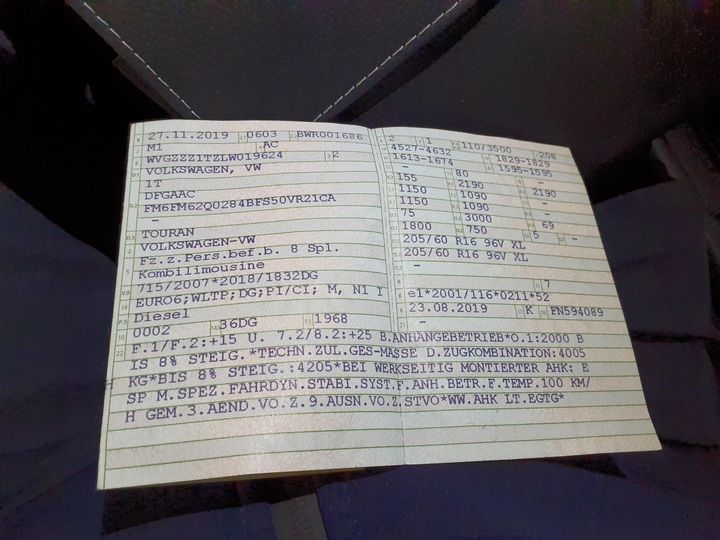 27.11.2019 0603 BWR001686
M1 AC
WVGZZZ1TZLW019624 2
VOLKSWAGEN, VW
1T
DFGAAC
FM6FM62Q0284BFS50VR21CA
-
TOURAN
VOLKSWAGEN-VW
Fz.z.Pers.bef.b. 8 Spl.
Kombilimousine
715/2007*2018/1832DG
EURO6;WLTP;DG;PI/CI; M, N1 I
Diesel
0002 36DG 1968
2 1 110/3500 208
4527-4632 1829-1829
1613-1674 1595-1595
- 80 -
155 2190 2190
1150 1090 -
1150 1090 -
75 3000 69
1800 750 5 -
205/60 R16 96V XL
205/60 R16 96V XL
-
7
e1*2001/116*0211*52
23.08.2019 K FN594089
-
F.1/F.2:+15 U. 7.2/8.2:+25 B.ANHÄNGEBETRIEB*O.1:2000 B
IS 8% STEIG.*TECHN.ZUL.GES-MASSE D.ZUGKOMBINATION:4005
KG*BIS 8% STEIG.:4205*BEI WERKSEITIG MONTIERTER AHK: E
SP M.SPEZ.FAHRDYN.STABI.SYST.F.ANH.BETR.F.TEMP.100 KM/
H GEM.3.AEND.VO.Z.9.AUSN.VO.Z.STVO*WW.AHK LT.EGTG*